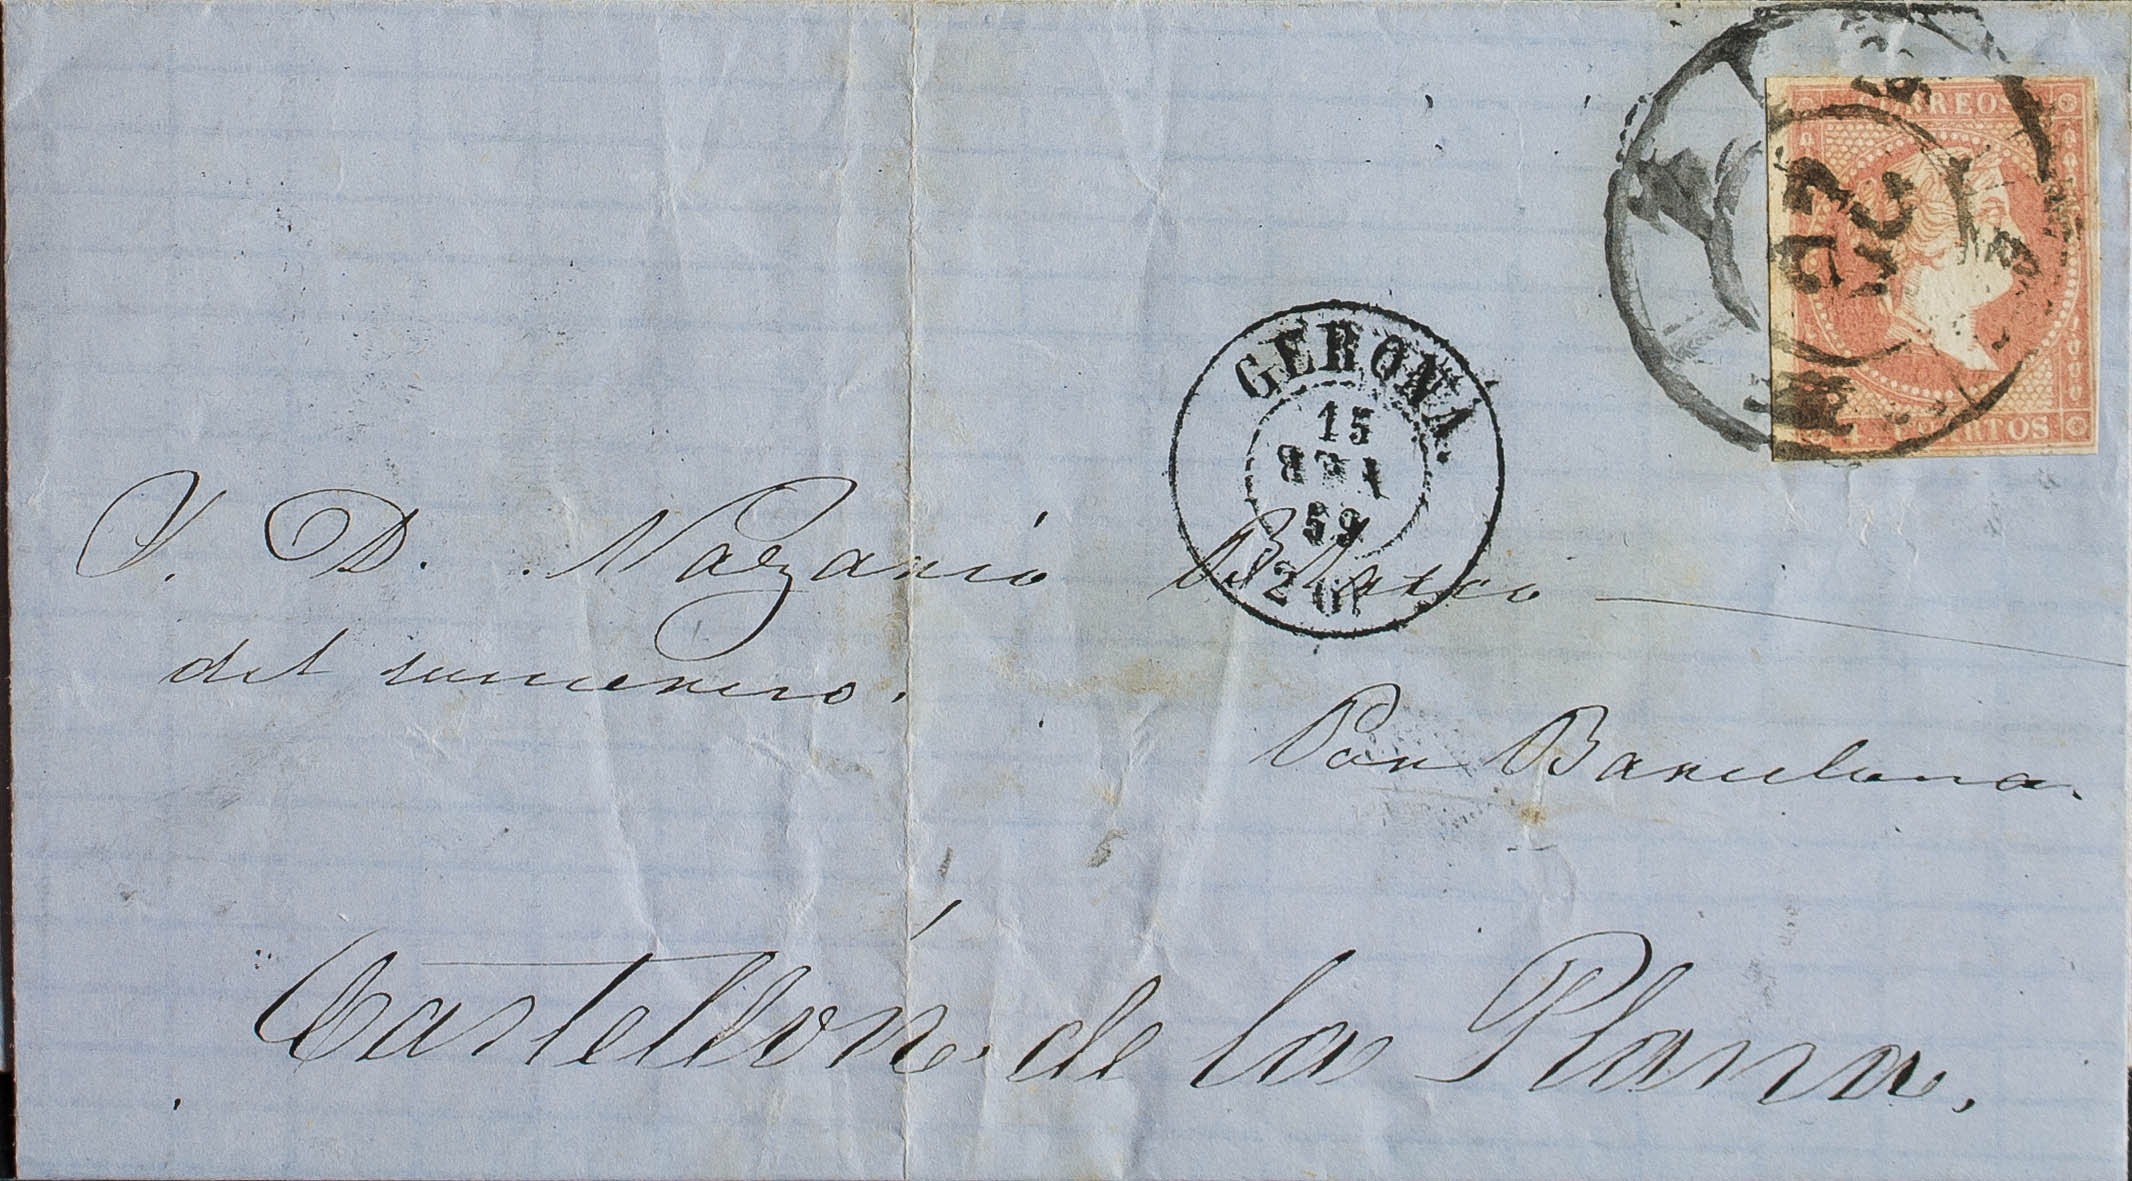 CORREOS
4. CUARTOS
GERONA.
15
59
S. D. Nazario Blasco
del comercio.
Por Barcelona.
Castellón de la Plana.